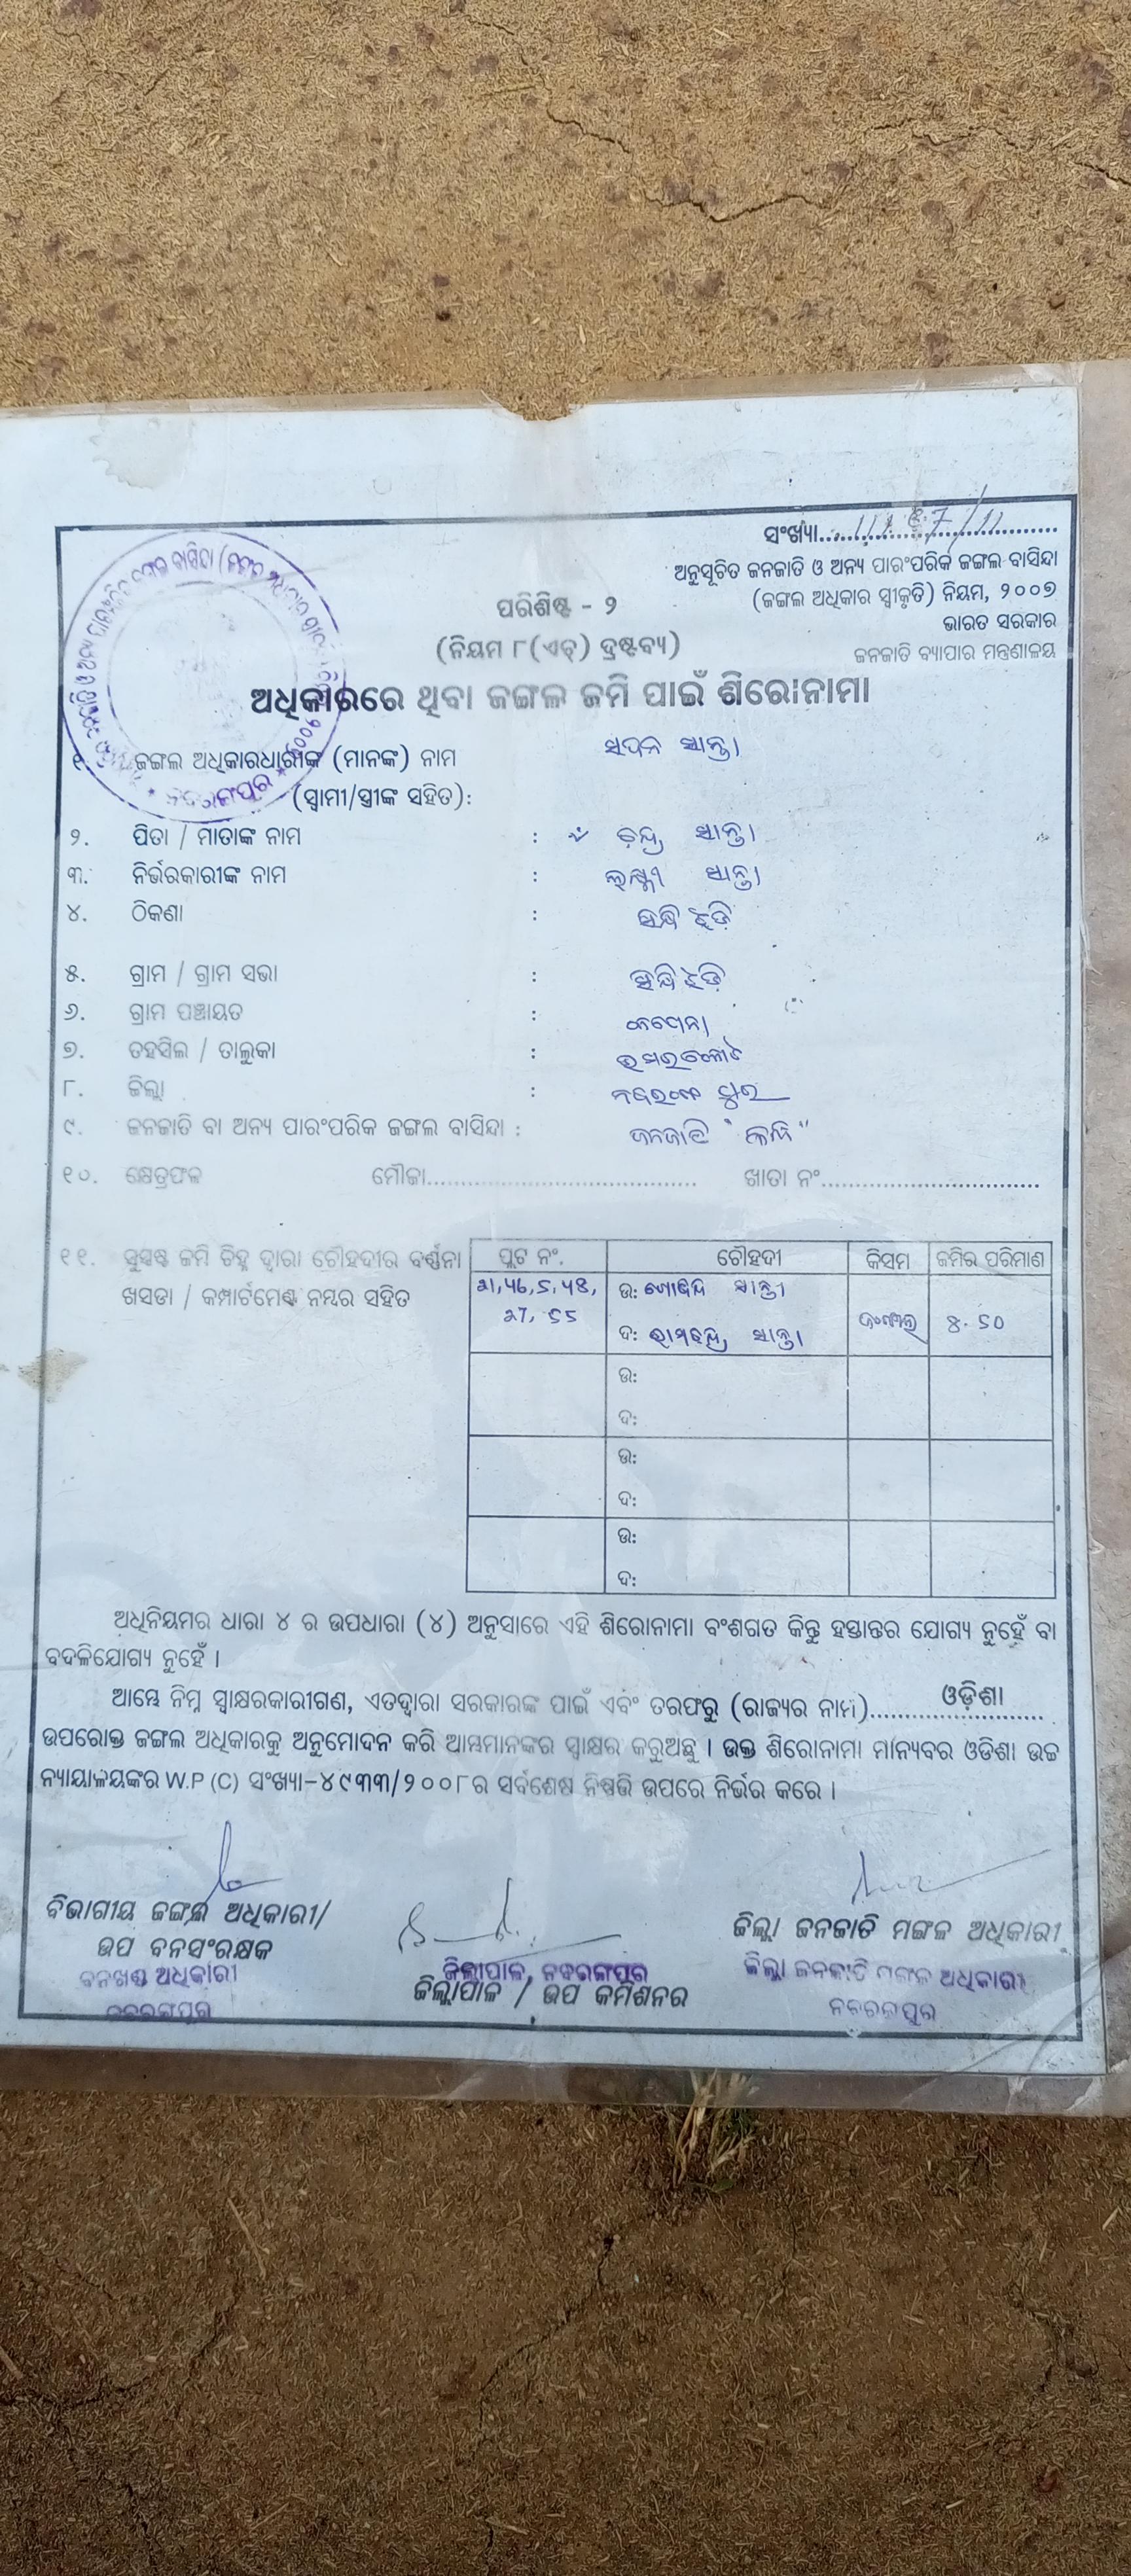 ସଂଖ୍ୟା
ଅନୁସୂଚିତ ଜନଜାତି ଓ ଅନ୍ୟ ପାରଂପରିକ ଜଙ୍ଗଲ ବାସିନ୍ଦା
(ଜଙ୍ଗଲ ଅଧିକାର ସ୍ୱୀକୃତି) ନିୟମ, ୨୦୦୭
ଭାରତ ସରକାର
ଜନଜାତି ବ୍ୟାପାର ମନ୍ତ୍ରଣାଳୟ
ପରିଶିଷ୍ଟ - ୨
(ନିୟମ ୮(ଏଚ୍) ଦ୍ରଷ୍ଟବ୍ୟ)
ଅଧିକାରରେ ଥିବା ଜଙ୍ଗଲ ଜମି ପାଇଁ ଶିରୋନାମା
୧. ଜଙ୍ଗଲ ଅଧିକାରଧାରୀଙ୍କ (ମାନଙ୍କ) ନାମ ସପନ ସାନ୍ତା
(ସ୍ୱାମୀ/ସ୍ତ୍ରୀଙ୍କ ସହିତ):
୨. ପିତା / ମାତାଙ୍କ ନାମ : ସାନ୍ତା
୩. ନିର୍ଭରକାରୀଙ୍କ ନାମ : ଲକ୍ଷ୍ମୀ ସାନ୍ତା
୪. ଠିକଣା :
୫. ଗ୍ରାମ / ଗ୍ରାମ ସଭା :
୬. ଗ୍ରାମ ପଞ୍ଚାୟତ :
୭. ତହସିଲ / ତାଲୁକା : ଉମରକୋଟ
୮. ଜିଲ୍ଲା : ନବରଙ୍ଗପୁର
୯. ଜନଜାତି ବା ଅନ୍ୟ ପାରଂପରିକ ଜଙ୍ଗଲ ବାସିନ୍ଦା : ଜନଜାତି
୧୦. କ୍ଷେତ୍ରଫଳ ମୌଜା ଖାତା ନଂ
୧୧. ସୁସ୍ପଷ୍ଟ ଜମି ଚିହ୍ନ ଦ୍ୱାରା ଚୌହଦୀର ବର୍ଣ୍ଣନା ପ୍ଲଟ ନଂ. ଚୌହଦୀ କିସମ ଜମିର ପରିମାଣ
ଖସଡା / କମ୍ପାର୍ଟମେଣ୍ଟ ନମ୍ବର ସହିତ
ଉ: ଗୋବିନ୍ଦ ସାନ୍ତା
ଦ: ରାମଚନ୍ଦ୍ର ସାନ୍ତା ଜଙ୍ଗଲ
ଉ:
ଦ:
ଉ:
ଦ:
ଉ:
ଦ:
ଅଧିନିୟମର ଧାରା ୪ ର ଉପଧାରା (୪) ଅନୁସାରେ ଏହି ଶିରୋନାମା ବଂଶଗତ କିନ୍ତୁ ହସ୍ତାନ୍ତର ଯୋଗ୍ୟ ନୁହେଁ ବା
ବଦଳିଯୋଗ୍ୟ ନୁହେଁ ।
ଆମ୍ଭେ ନିମ୍ନ ସ୍ୱାକ୍ଷରକାରୀଗଣ, ଏତଦ୍ୱାରା ସରକାରଙ୍କ ପାଇଁ ଏବଂ ତରଫରୁ (ରାଜ୍ୟର ନାମ) ଓଡ଼ିଶା
ଉପରୋକ୍ତ ଜଙ୍ଗଲ ଅଧିକାରକୁ ଅନୁମୋଦନ କରି ଆମ୍ଭମାନଙ୍କର ସ୍ୱାକ୍ଷର କରୁଅଛୁ । ଉକ୍ତ ଶିରୋନାମା ମାନ୍ୟବର ଓଡିଶା ଉଚ୍ଚ
ନ୍ୟାୟାଳୟଙ୍କର W.P (C) ସଂଖ୍ୟା-୪୯୩୩/୨୦୦୮ର ସର୍ବଶେଷ ନିଷ୍ପତ୍ତି ଉପରେ ନିର୍ଭର କରେ ।
ବିଭାଗୀୟ ଜଙ୍ଗଲ ଅଧିକାରୀ/
ଉପ ବନସଂରକ୍ଷକ
ବନଖଣ୍ଡ ଅଧିକାରୀ
ନବରଙ୍ଗପୁର
ଜିଲ୍ଲାପାଳ, ନବରଙ୍ଗପୁର
ଜିଲ୍ଲାପାଳ / ଉପ କମିଶନର
ଜିଲ୍ଲା ଜନଜାତି ମଙ୍ଗଳ ଅଧିକାରୀ
ଜିଲ୍ଲା ଜନଜାତି ମଙ୍ଗଳ ଅଧିକାରୀ
ନବରଙ୍ଗପୁର